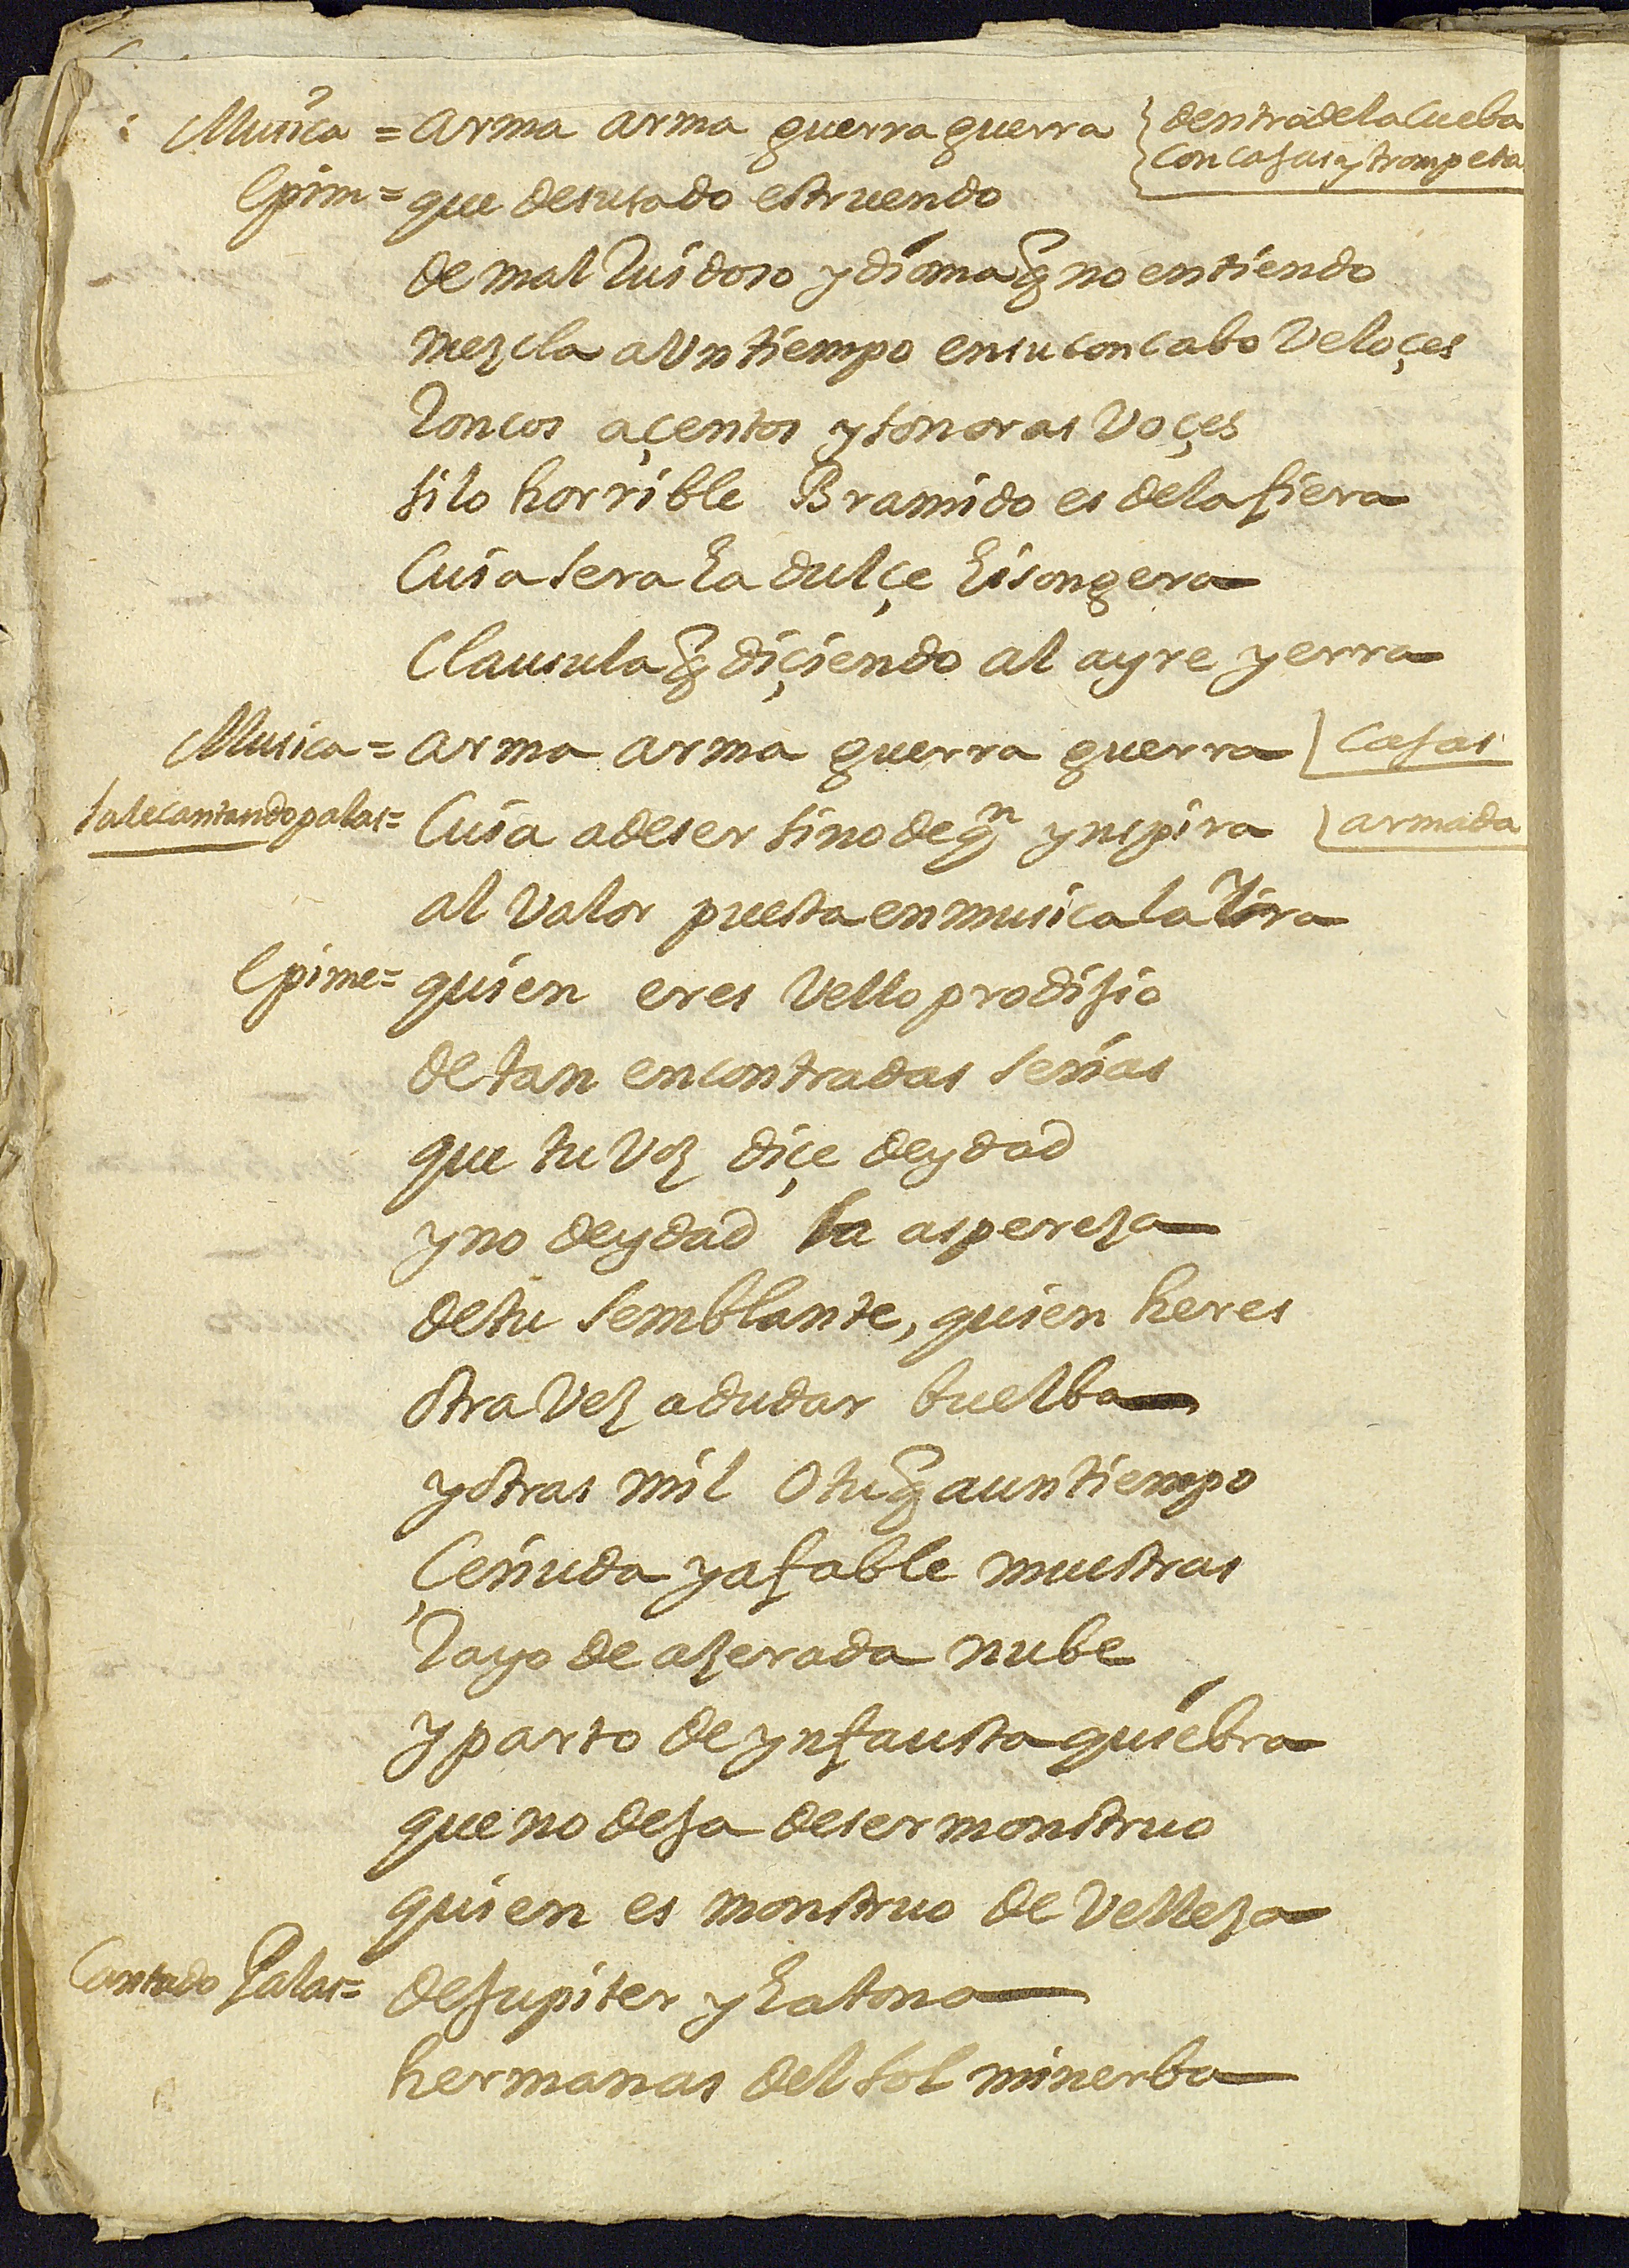 Musica = arma arma guerra guerra } dentro de la Cueba
con cajas y trompeta
Epim = que desusado estruendo
de mal Ruidoso ydioma q̃ no entiendo
mezcla a Un tiempo en su concabo Veloçes
Roncos açentos y sonoras Voçes
si lo horrible Bramido es de la fiera
Cuia sera La dulçe Lisongera
Clausula q̃ diçiendo al ayre yerra
Musica = arma arma guerra guerra } cajas
sale cantando palas = Cuia a de ser sino de qn ynspira } armada
al Valor puesta en musica la Yra
Epime = quien eres Vello prodijio
de tan encontradas señas
que tu Voz diçe deydad
y no deydad la aspereza
de tu semblante, quien heres
otra Vez a dudar buelba
y otras mil O tu q̃ a un tiempo
Çeñuda y afable muestras
Rayo de azerada nube
y parto de ynfausta quiebra
que no deja de ser monstruo
quien es monstruo de Velleza
Cantado Palas = de Jupiter y Latona
hermanas del sol minerba